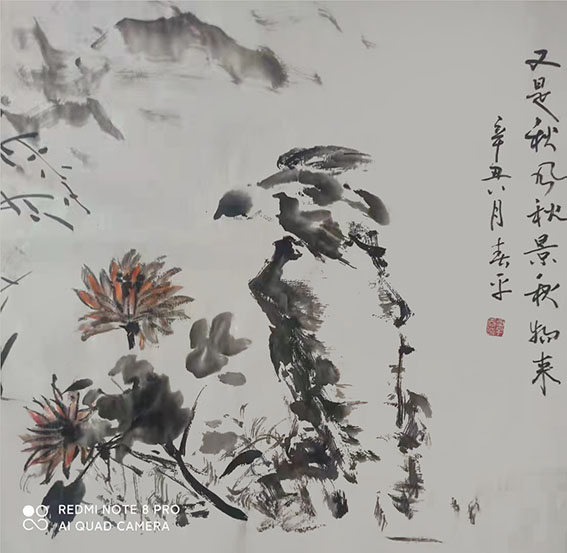 又是秋风秋景秋物来
辛丑八月春平
REDMI NOTE 8 PRO
AI QUAD CAMERA